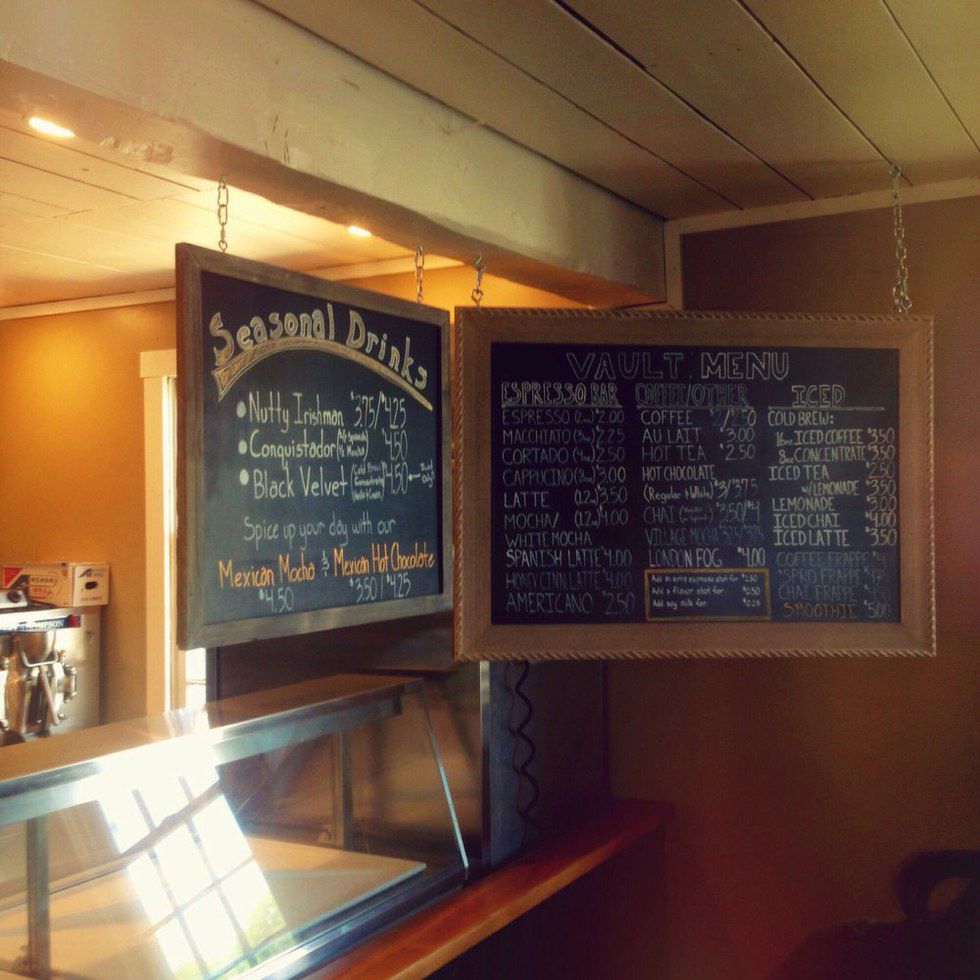 Seasonal Drinks
Nutty Irishman $3.75/$4.25
Conquistador $4.50
Black Velvet $4.50
Spice up your day with our
Mexican Mocha & Mexican Hot Chocolate
$4.50 $3.50/$4.25
VAULT MENU
ESPRESSO BAR
ESPRESSO (2oz) $2.00
MACCHIATO (3oz) $2.25
CORTADO (4oz) $2.50
CAPPUCINO (8oz) $3.00
LATTE (12oz) $3.50
MOCHA/ (12oz) $4.00
WHITE MOCHA
SPANISH LATTE $4.00
HONEY CINN LATTE $4.00
AMERICANO $2.50
COFFEE/OTHER
COFFEE $2/2.50
AU LAIT $3.00
HOT TEA $2.50
HOT CHOCOLATE
(Regular + White) $3/$3.75
CHAI $3.50/$4
VILLAGE MOCHA 3.25/3.75
LONDON FOG $4.00
Add an extra espresso shot for $1.50
Add a flavor shot for $0.50
Add soy milk for $0.25
ICED
COLD BREW:
16oz ICED COFFEE $3.50
8oz CONCENTRATE $3.50
ICED TEA $2.50
w/ LEMONADE $3.50
LEMONADE $3.00
ICED CHAI $4.00
ICED LATTE $3.50
COFFEE FRAPPE $4
SPRO FRAPPE
CHAI FRAPPE 4.50
SMOOTHIE $5.00